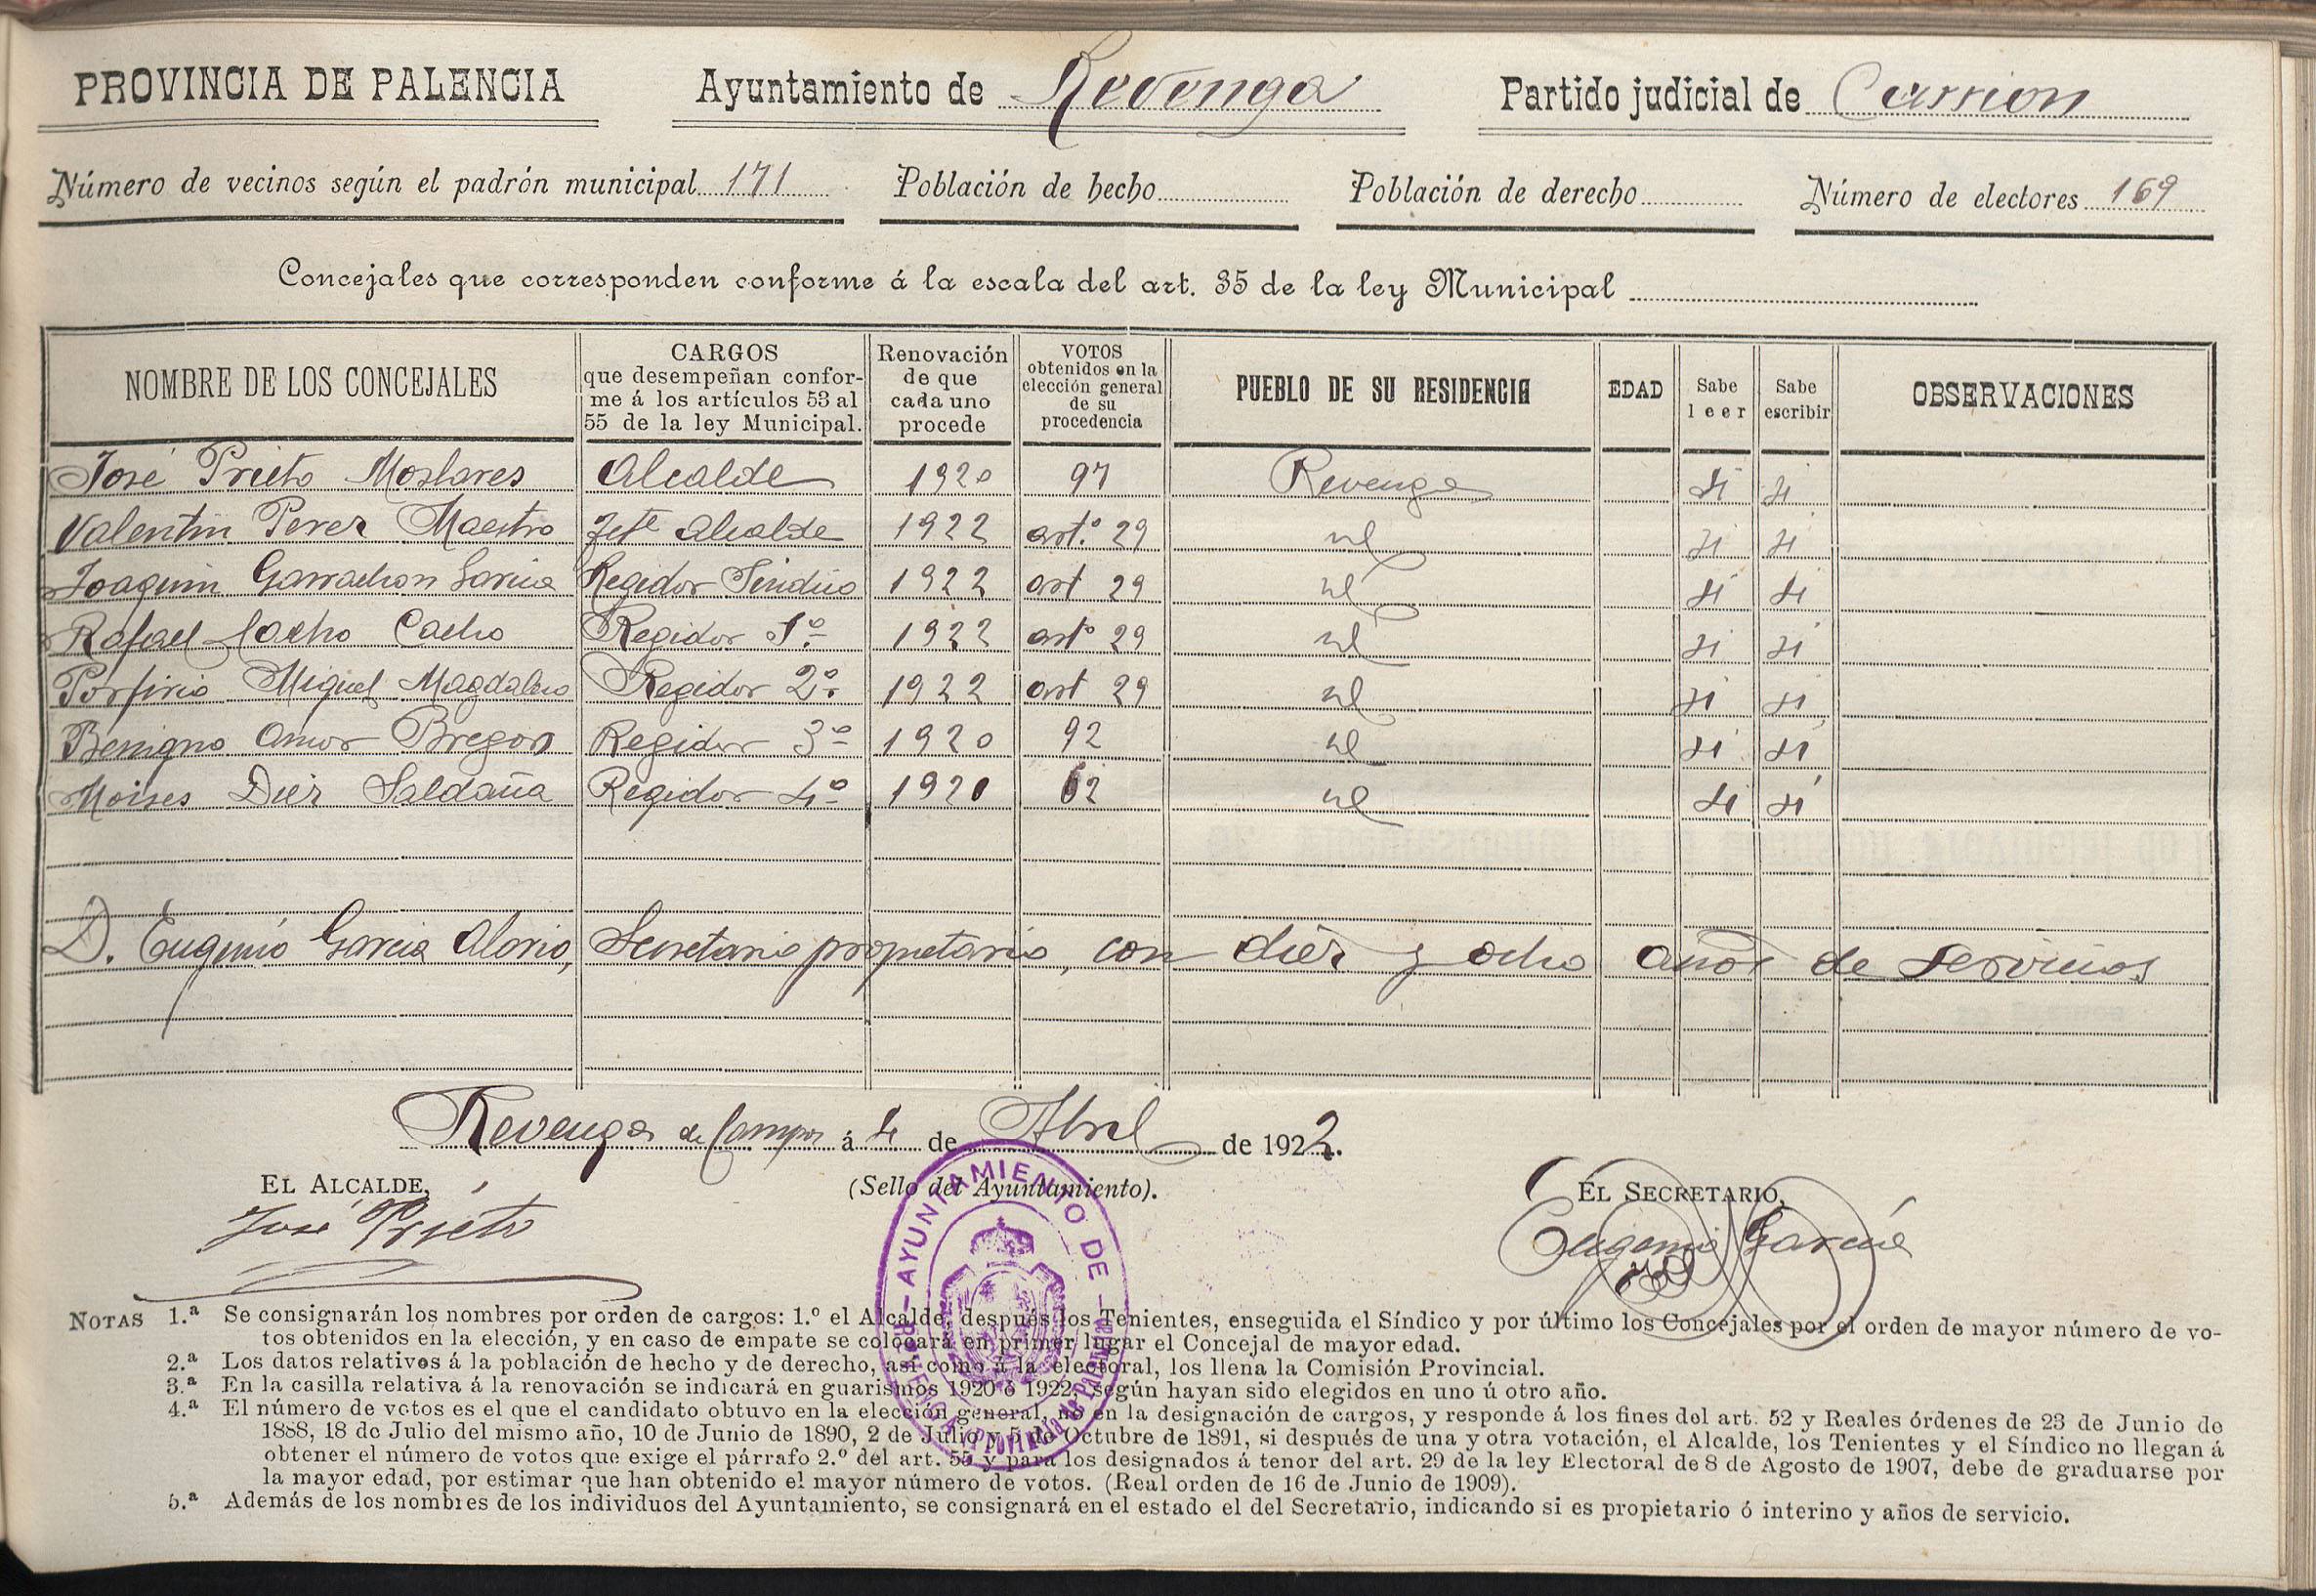 PROVINCIA DE PALENCIA Ayuntamiento de Revenga Partido judicial de Carrion
Número de vecinos según el padrón municipal 171 Población de hecho Población de derecho Número de electores 169
Concejales que corresponden conforme á la escala del art. 35 de la ley Municipal
NOMBRE DE LOS CONCEJALES CARGOS que desempeñan conforme á los artículos 53 al 55 de la ley Municipal. Renovación de que cada uno procede VOTOS obtenidos en la elección general de su procedencia PUEBLO DE SU RESIDENCIA EDAD Sabe leer Sabe escribir OBSERVACIONES
José Prieto Moslares Alcalde 1920 97 Revenga si si
Valentin Perez Maestro Tete Alcalde 1922 art.º 29 id si si
Joaquin Garrachon Garcia Regidor Sindico 1922 art 29 id si si
Rafael Cacho Cacho Regidor 1º 1922 artº 29 id si si
Porfirio Miguel Magdaleno Regidor 2º 1922 art 29 id si si
Benigno Amor Bregon Regidor 3º 1920 92 id si si
Moises Diez Saldaña Regidor 4º 1920 62 id si si
D. Eugenio Garcia Alonso, Secretario propietario, con diez y ocho años de servicios
Revenga de Campos á 4 de Abril de 1922.
EL ALCALDE, (Sello del Ayuntamiento). EL SECRETARIO,
José Prieto Eugenio Garcia
AYUNTAMIENTO DE REVENGA (Provincia de Palencia)
NOTAS 1.ª Se consignarán los nombres por orden de cargos: 1.º el Alcalde, después los Tenientes, enseguida el Síndico y por último los Concejales por el orden de mayor número de vo-
tos obtenidos en la elección, y en caso de empate se colocará en primer lugar el Concejal de mayor edad.
2.ª Los datos relativos á la población de hecho y de derecho, así como á la electoral, los llena la Comisión Provincial.
3.ª En la casilla relativa á la renovación se indicará en guarismos 1920 ó 1922, según hayan sido elegidos en uno ú otro año.
4.ª El número de votos es el que el candidato obtuvo en la elección general, no en la designación de cargos, y responde á los fines del art. 52 y Reales órdenes de 23 de Junio de
1888, 18 de Julio del mismo año, 10 de Junio de 1890, 2 de Julio y 5 de Octubre de 1891, si después de una y otra votación, el Alcalde, los Tenientes y el Síndico no llegan á
obtener el número de votos que exige el párrafo 2.º del art. 55 y para los designados á tenor del art. 29 de la ley Electoral de 8 de Agosto de 1907, debe de graduarse por
la mayor edad, por estimar que han obtenido el mayor número de votos. (Real orden de 16 de Junio de 1909).
5.ª Además de los nombres de los individuos del Ayuntamiento, se consignará en el estado el del Secretario, indicando si es propietario ó interino y años de servicio.